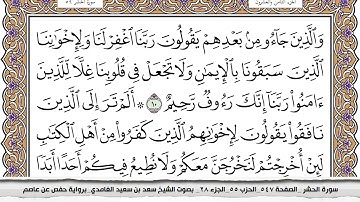 سورة الحشر ٥٩
الجزء الثامن والعشرون
وَالَّذِينَ جَاءُو مِنۢ بَعْدِهِمْ يَقُولُونَ رَبَّنَا اغْفِرْ لَنَا وَلِإِخْوَٰنِنَا
الَّذِينَ سَبَقُونَا بِالْإِيمَٰنِ وَلَا تَجْعَلْ فِي قُلُوبِنَا غِلًّا لِّلَّذِينَ
ءَامَنُوا رَبَّنَا إِنَّكَ رَءُوفٌ رَّحِيمٌ ١٠ ۞ أَلَمْ تَرَ إِلَى الَّذِينَ
نَافَقُوا يَقُولُونَ لِإِخْوَٰنِهِمُ الَّذِينَ كَفَرُوا مِنْ أَهْلِ الْكِتَٰبِ
لَئِنْ أُخْرِجْتُمْ لَنَخْرُجَنَّ مَعَكُمْ وَلَا نُطِيعُ فِيكُمْ أَحَدًا أَبَدًا
سورة الحشر _الصفحة ٥٤٧_الحزب ٥٥ _الجزء ٢٨_ بصوت الشيخ سعد بن سعيد الغامدي_برواية حفص عن عاصم